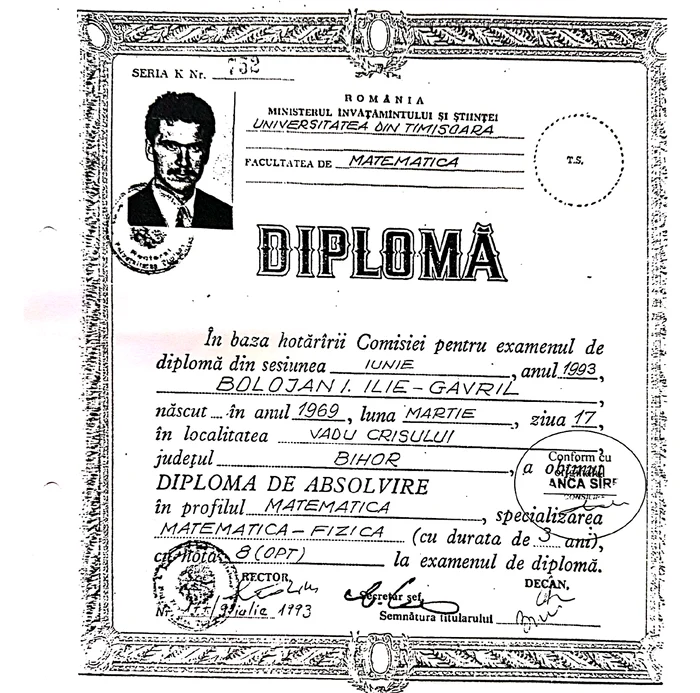 SERIA K Nr. 752
ROMÂNIA
MINISTERUL ÎNVĂȚĂMÎNTULUI ȘI ȘTIINȚEI
UNIVERSITATEA DIN TIMIȘOARA
FACULTATEA DE MATEMATICA
T.S.
DIPLOMĂ
În baza hotărîrii Comisiei pentru examenul de
diplomă din sesiunea IUNIE, anul 1993,
BOLOJAN I. ILIE-GAVRIL,
născut în anul 1969, luna MARTIE, ziua 17,
în localitatea VADU CRISULUI,
județul BIHOR, a obținut
Conform cu
ANCA SÎRB
DIPLOMA DE ABSOLVIRE
în profilul MATEMATICA, specializarea
MATEMATICA-FIZICA (cu durata de 3 ani),
cu nota 8 (OPT) la examenul de diplomă.
RECTOR,
Secretar șef,
DECAN,
Nr. iulie 1993
Semnătura titularului